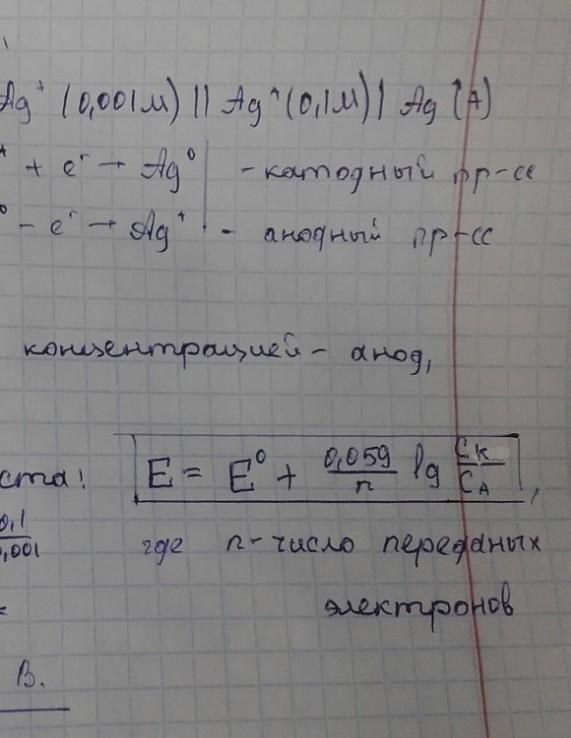 Ag⁺ (0,001M) || Ag⁺ (0,1M) | Ag (A)
⁺ + e⁻ → Ag⁰ - катодный пр-сс
⁰ - e⁻ → Ag⁺ - анодный пр-сс
концентрацией - анод,
ста: E = E⁰ + 0,059/n lg Cк/CA,
0,1/0,001 где n - число переданых
= электронов
В.